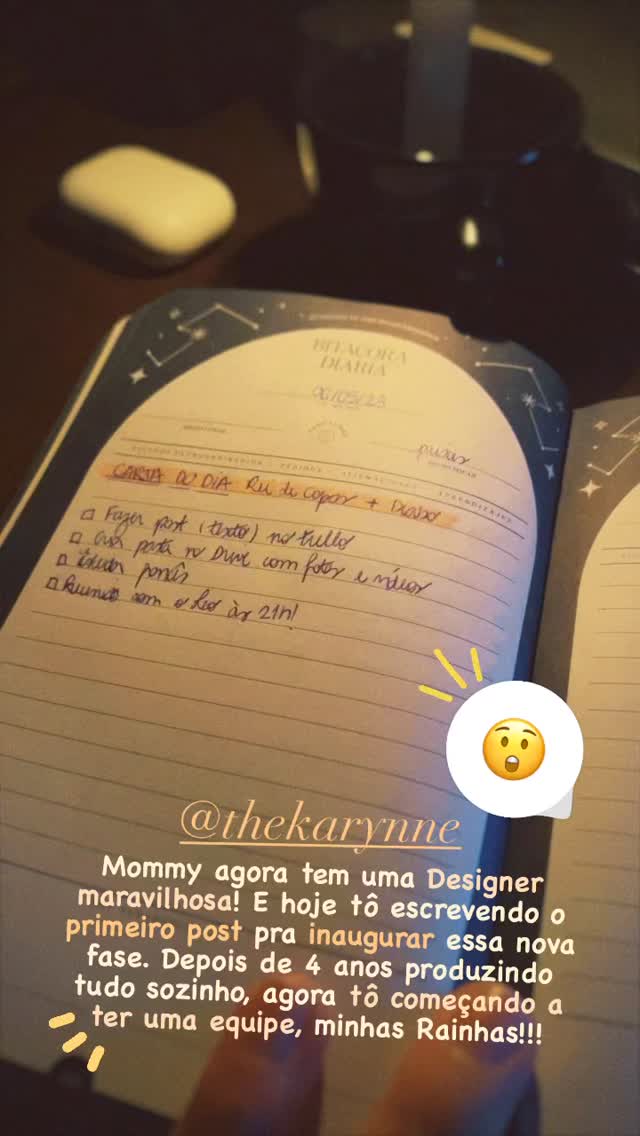 BITÁCORA
DIARIA
06/05/23
CARTA DO DIA Rei de Copas + Diabo
Fazer post (texto) no trello
Criar pasta no Drive com fotos e vídeos
Reunião com o Leo às 21h!
@thekarynne
Mommy agora tem uma Designer
maravilhosa! E hoje tô escrevendo o
primeiro post pra inaugurar essa nova
fase. Depois de 4 anos produzindo
tudo sozinho, agora tô começando a
ter uma equipe, minhas Rainhas!!!